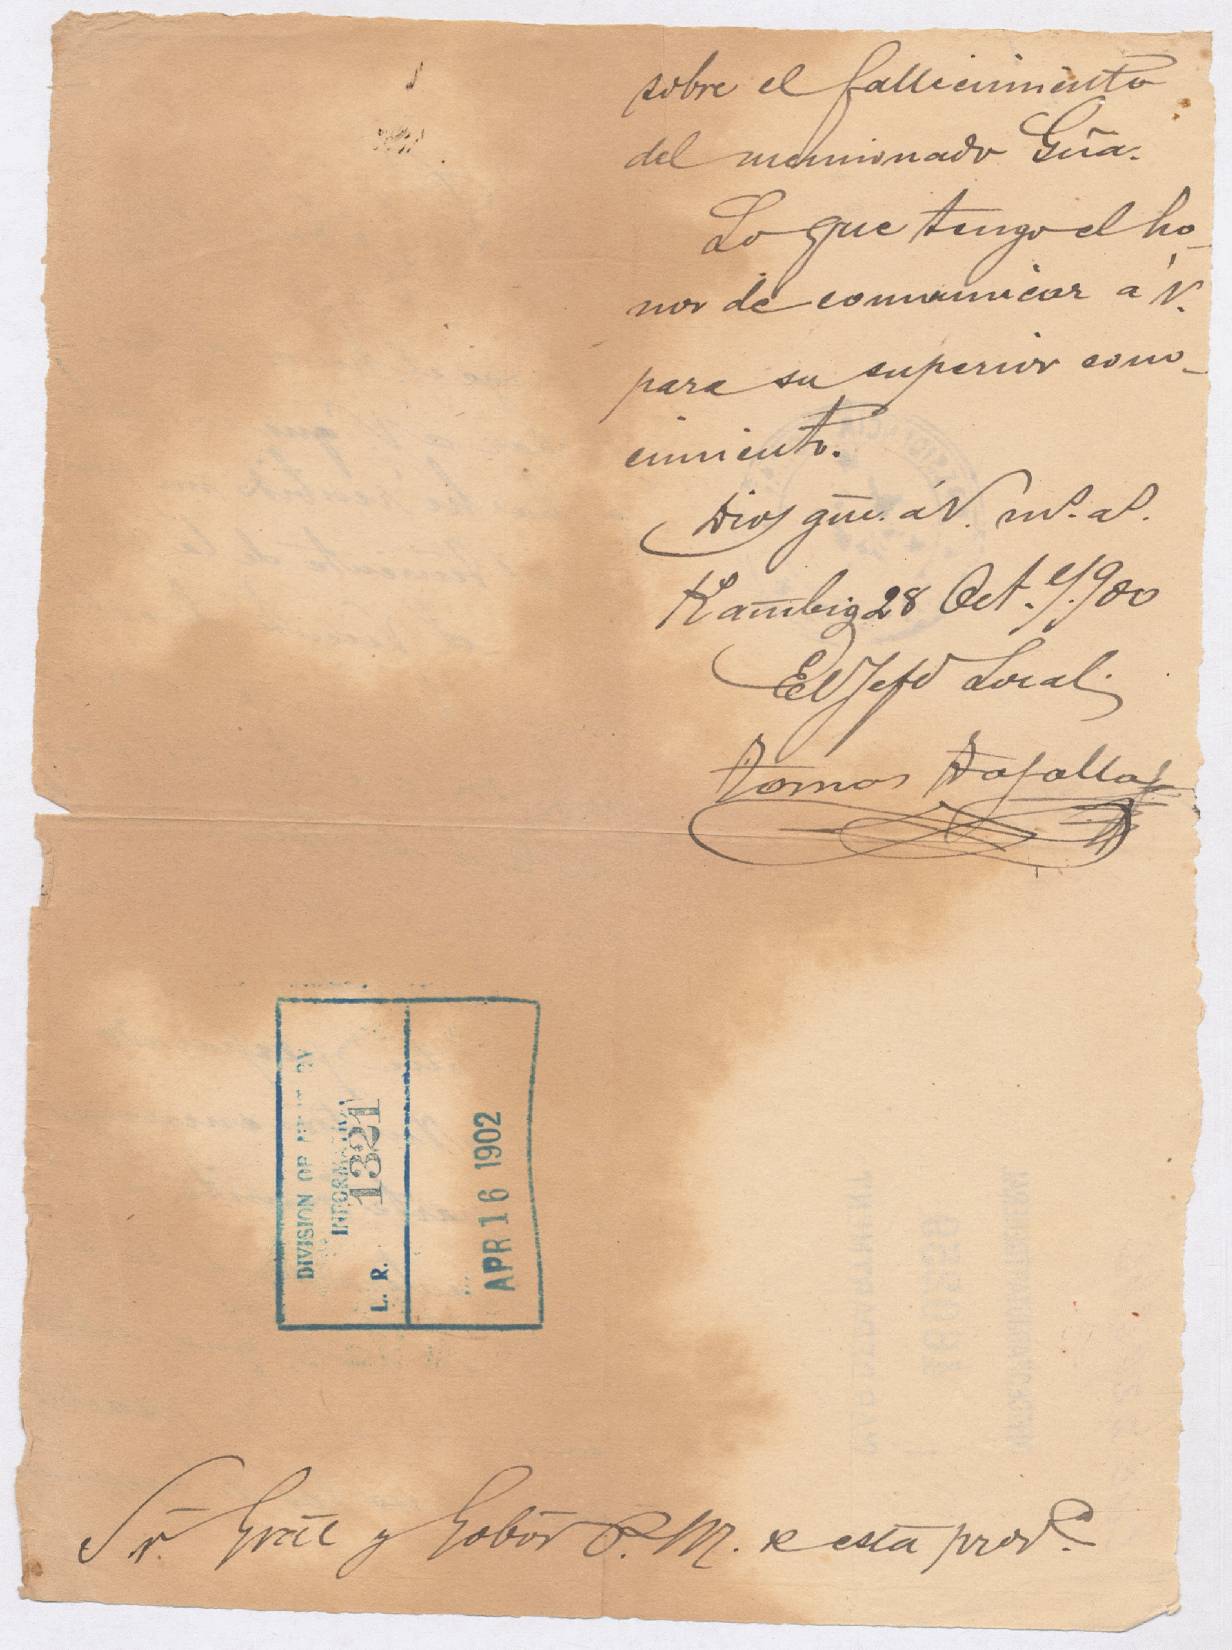 sobre el fallecimiento
del mencionado Gũa.
Lo que tengo el ho-
nor de comunicar á V.
para su superior cono-
cimiento.
Dios gũe. á V. ms. as.
Kambig 28 Oct.e/.900
El Jefe Local.
Tomas
DIVISION OF
INFORMATION
L. R. 1321
APR 16 1902
Sr. Gral y Gobor P. M. de esta prova.